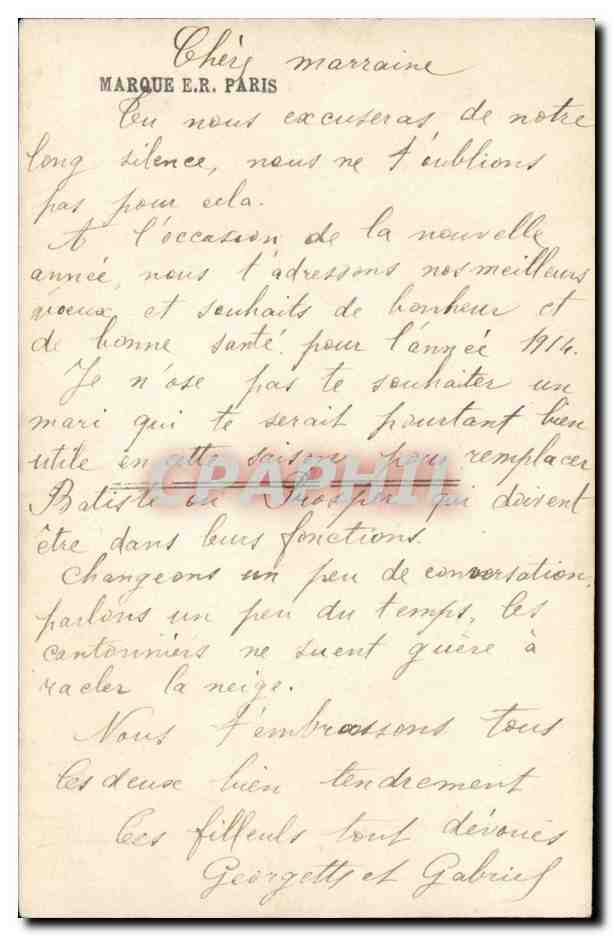 Chère marraine
MARQUE E.R. PARIS
Tu nous excuseras de notre
long silence, nous ne t'oublions
pas pour cela.
A l'occasion de la nouvelle
année, nous t'adressons nos meilleurs
voeux et souhaits de bonheur et
de bonne santé pour l'année 1914.
Je n'ose pas te souhaiter un
mari qui te serait pourtant bien
utile en cette saison pour remplacer
CPAPHIL
Batiste ou Prosper qui doivent
être dans leurs fonctions.
Changeons un peu de conversation,
parlons un peu du temps, les
cantonniers ne suent guère à
racler la neige.
Nous t'embrassons tous
les deux bien tendrement
Tes filleuls tout dévoués
Georgette et Gabriel